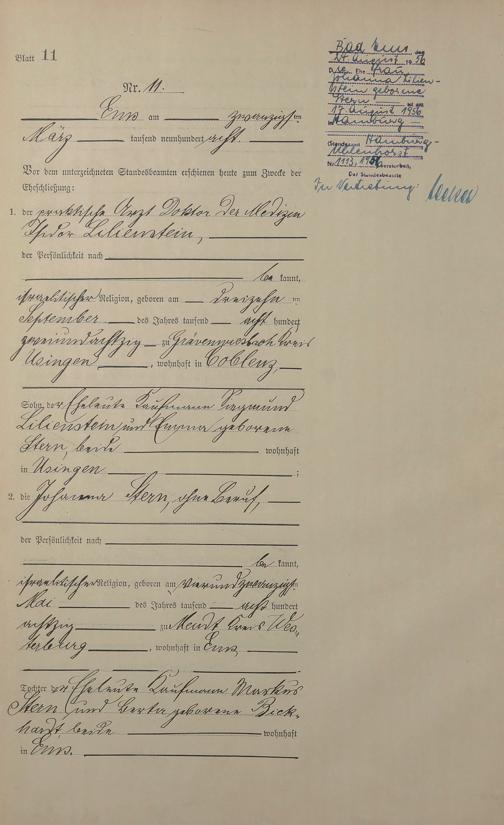 Blatt 11
Nr. 11.
Ems am zwanzigsten
März tausend neunhundert acht.
Vor dem unterzeichneten Standesbeamten erschienen heute zum Zwecke der
Eheschließung:
1. der praktische Arzt Doktor der Medizin
Isidor Lilienstein,
der Persönlichkeit nach
be kannt,
israelitischer Religion, geboren am dreizehn ten
September des Jahres tausend acht hundert
zweiundachtzig zu Grävenwiesbach Kreis
Usingen, wohnhaft in Coblenz,
Sohn der Eheleute Kaufmann Siegmund
Lilienstein und Emma geborene
Stern, beide wohnhaft
in Usingen;
2. die Johanna Stern, ohne Beruf,
der Persönlichkeit nach
be kannt,
israelitischer Religion, geboren am vierundzwanzigsten
Mai des Jahres tausend acht hundert
achtzig zu Meudt Kreis Wes-
terburg, wohnhaft in Ems,
Tochter der Eheleute Kaufmann Markus
Stern und Berta geborene
beide wohnhaft
in Ems.
Bad Ems, den
24. August 1956
Die Ehefrau
Johanna Lilien-
stein geborene
Stern ist am
17. August 1956
Hamburg
(Standesamt Hamburg-
Uhlenhorst
Nr. 1993, 1956
Der Standesbeamte
In Vertretung: